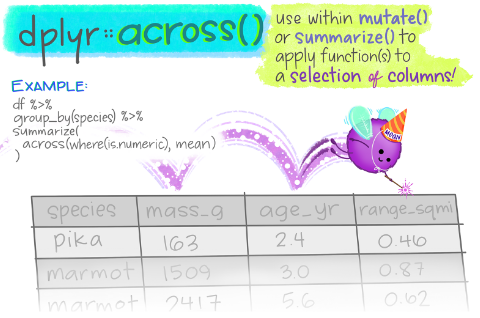 dplyr::across()
use within mutate()
or summarize() to
apply function(s) to
a selection of columns!
EXAMPLE:
df %>%
group_by(species) %>%
summarize(
across(where(is.numeric), mean)
)
MEAN
species mass_g age_yr range_sqmi
pika 163 2.4 0.46
marmot 1509 3.0 0.87
marmot 2417 5.6 0.62